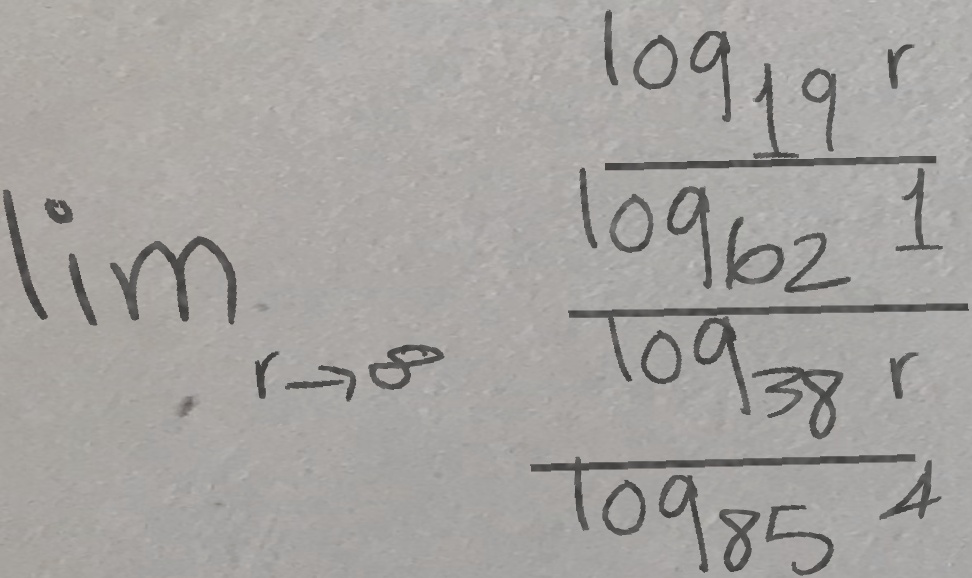 lim r→∞ \frac{\frac{\log_{19} r}{\log_{62} 1}}{\frac{\log_{38} r}{\log_{85} 4}}